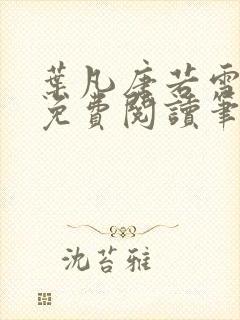 葉凡唐若雪
免費閱讀筆
沈苔雅